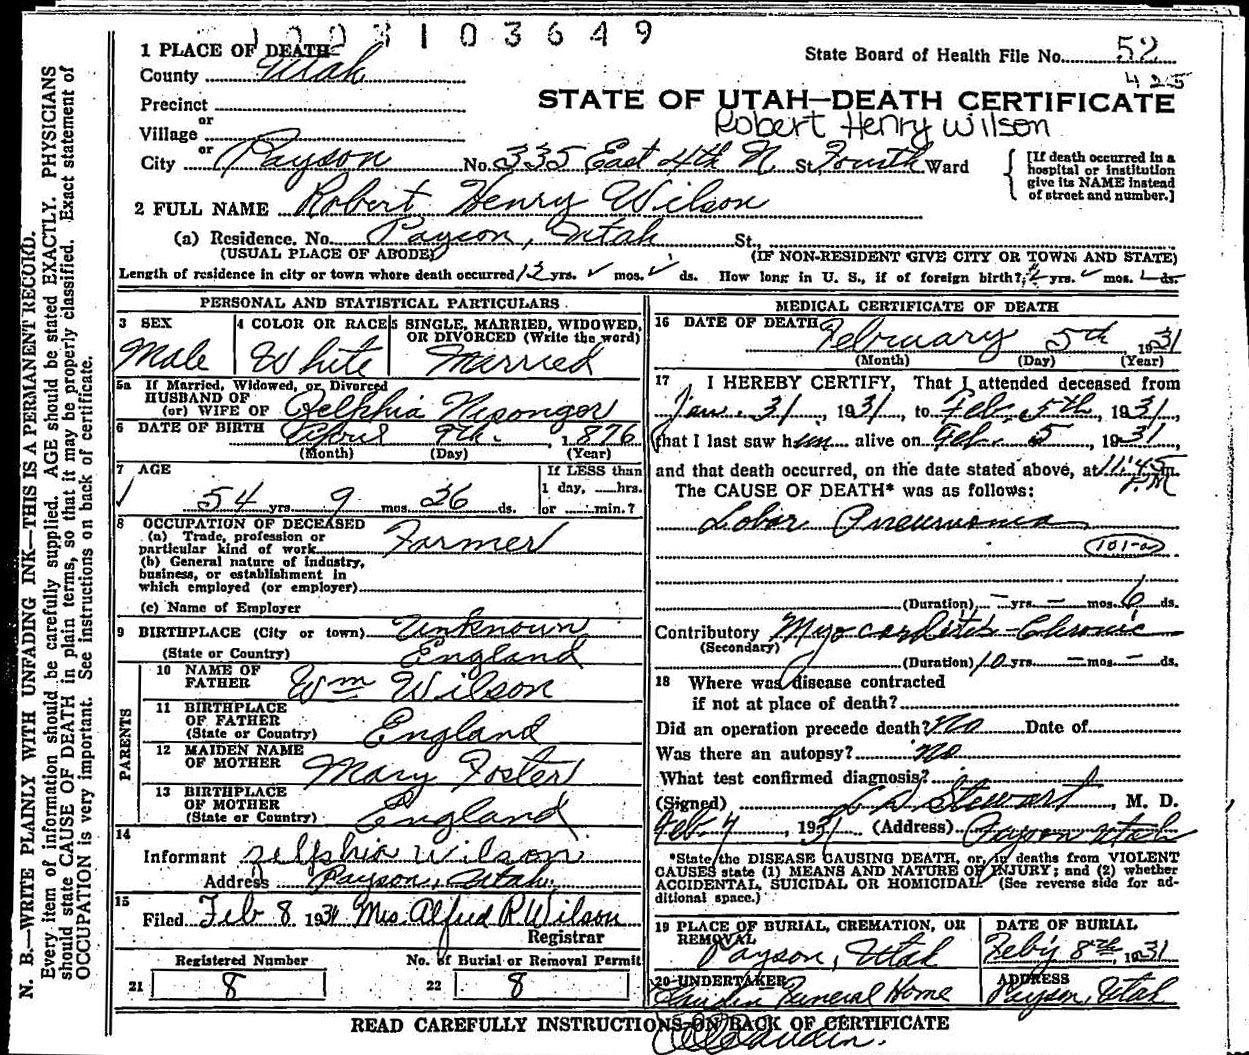 1003103649
1 PLACE OF DEATH
State Board of Health File No. 52
County Utah
425
Precinct
STATE OF UTAH—DEATH CERTIFICATE
or
Village
Robert Henry Wilson
or
City Payson No. 335 East 4th N St. Fourth Ward
[If death occurred in a hospital or institution give its NAME instead of street and number.]
2 FULL NAME Robert Henry Wilson
(a) Residence. No. Payson, Utah St.,
(USUAL PLACE OF ABODE) (IF NON-RESIDENT GIVE CITY OR TOWN AND STATE)
Length of residence in city or town where death occurred 12 yrs. mos. ds. How long in U. S., if of foreign birth? yrs. mos. ds.
PERSONAL AND STATISTICAL PARTICULARS
3 SEX
Male
4 COLOR OR RACE
White
5 SINGLE, MARRIED, WIDOWED, OR DIVORCED (Write the word)
Married
5a If Married, Widowed, or Divorced
HUSBAND OF
(or) WIFE OF Zelphia
6 DATE OF BIRTH April 9th, 1876
(Month) (Day) (Year)
7 AGE
If LESS than
1 day, ......hrs.
54 yrs. 9 mos. 26 ds. or ......min.?
8 OCCUPATION OF DECEASED
(a) Trade, profession or
particular kind of work Farmer
(b) General nature of industry,
business, or establishment in
which employed (or employer)
(c) Name of Employer
9 BIRTHPLACE (City or town) Unknown
(State or Country) England
PARENTS
10 NAME OF FATHER Wm Wilson
11 BIRTHPLACE OF FATHER (State or Country) England
12 MAIDEN NAME OF MOTHER Mary Foster
13 BIRTHPLACE OF MOTHER (State or Country) England
14
Informant Zelphia Wilson
Address Payson, Utah.
15
Filed Feb 8 1931 Mrs. Alfred R Wilson
Registrar
Registered Number No. of Burial or Removal Permit
21 8 22 8
MEDICAL CERTIFICATE OF DEATH
16 DATE OF DEATH February 5th 1931
(Month) (Day) (Year)
17 I HEREBY CERTIFY, That I attended deceased from
Jan. 31, 1931, to Feb. 5th, 1931,
that I last saw him alive on Feb. 5, 1931
and that death occurred, on the date stated above, at 11:45 m.
P.M
The CAUSE OF DEATH* was as follows:
Lobar Pneumonia
101-a
(Duration) — yrs. — mos. 6 ds.
Contributory Myocarditis - Chronic
(Secondary)
(Duration) 10 yrs. — mos. — ds.
18 Where was disease contracted
if not at place of death?
Did an operation precede death? No Date of
Was there an autopsy? No
What test confirmed diagnosis?
(Signed) Stewart, M. D.
Feb. 7, 1931 (Address) Payson Utah
*State the DISEASE CAUSING DEATH, or, in deaths from VIOLENT
CAUSES state (1) MEANS AND NATURE OF INJURY; and (2) whether
ACCIDENTAL, SUICIDAL OR HOMICIDAL. (See reverse side for ad-
ditional space.)
19 PLACE OF BURIAL, CREMATION, OR REMOVAL
Payson, Utah
DATE OF BURIAL
Feb'y 8th, 1931
20 UNDERTAKER
Funeral Home
ADDRESS
Payson, Utah
READ CAREFULLY INSTRUCTIONS ON BACK OF CERTIFICATE
N. B.—WRITE PLAINLY WITH UNFADING INK—THIS IS A PERMANENT RECORD.
Every item of information should be carefully supplied. AGE should be stated EXACTLY. PHYSICIANS
should state CAUSE OF DEATH in plain terms, so that it may be properly classified. Exact statement of
OCCUPATION is very important. See instructions on back of certificate.